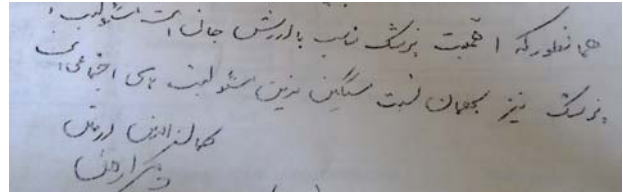 همانطور که اهمیت پزشک تناسب با ارزش جان است مسئولیت
پزشک نیز بهمان نسبت سنگین ترین مسئولیت های اجتماعی است
کمال الدین